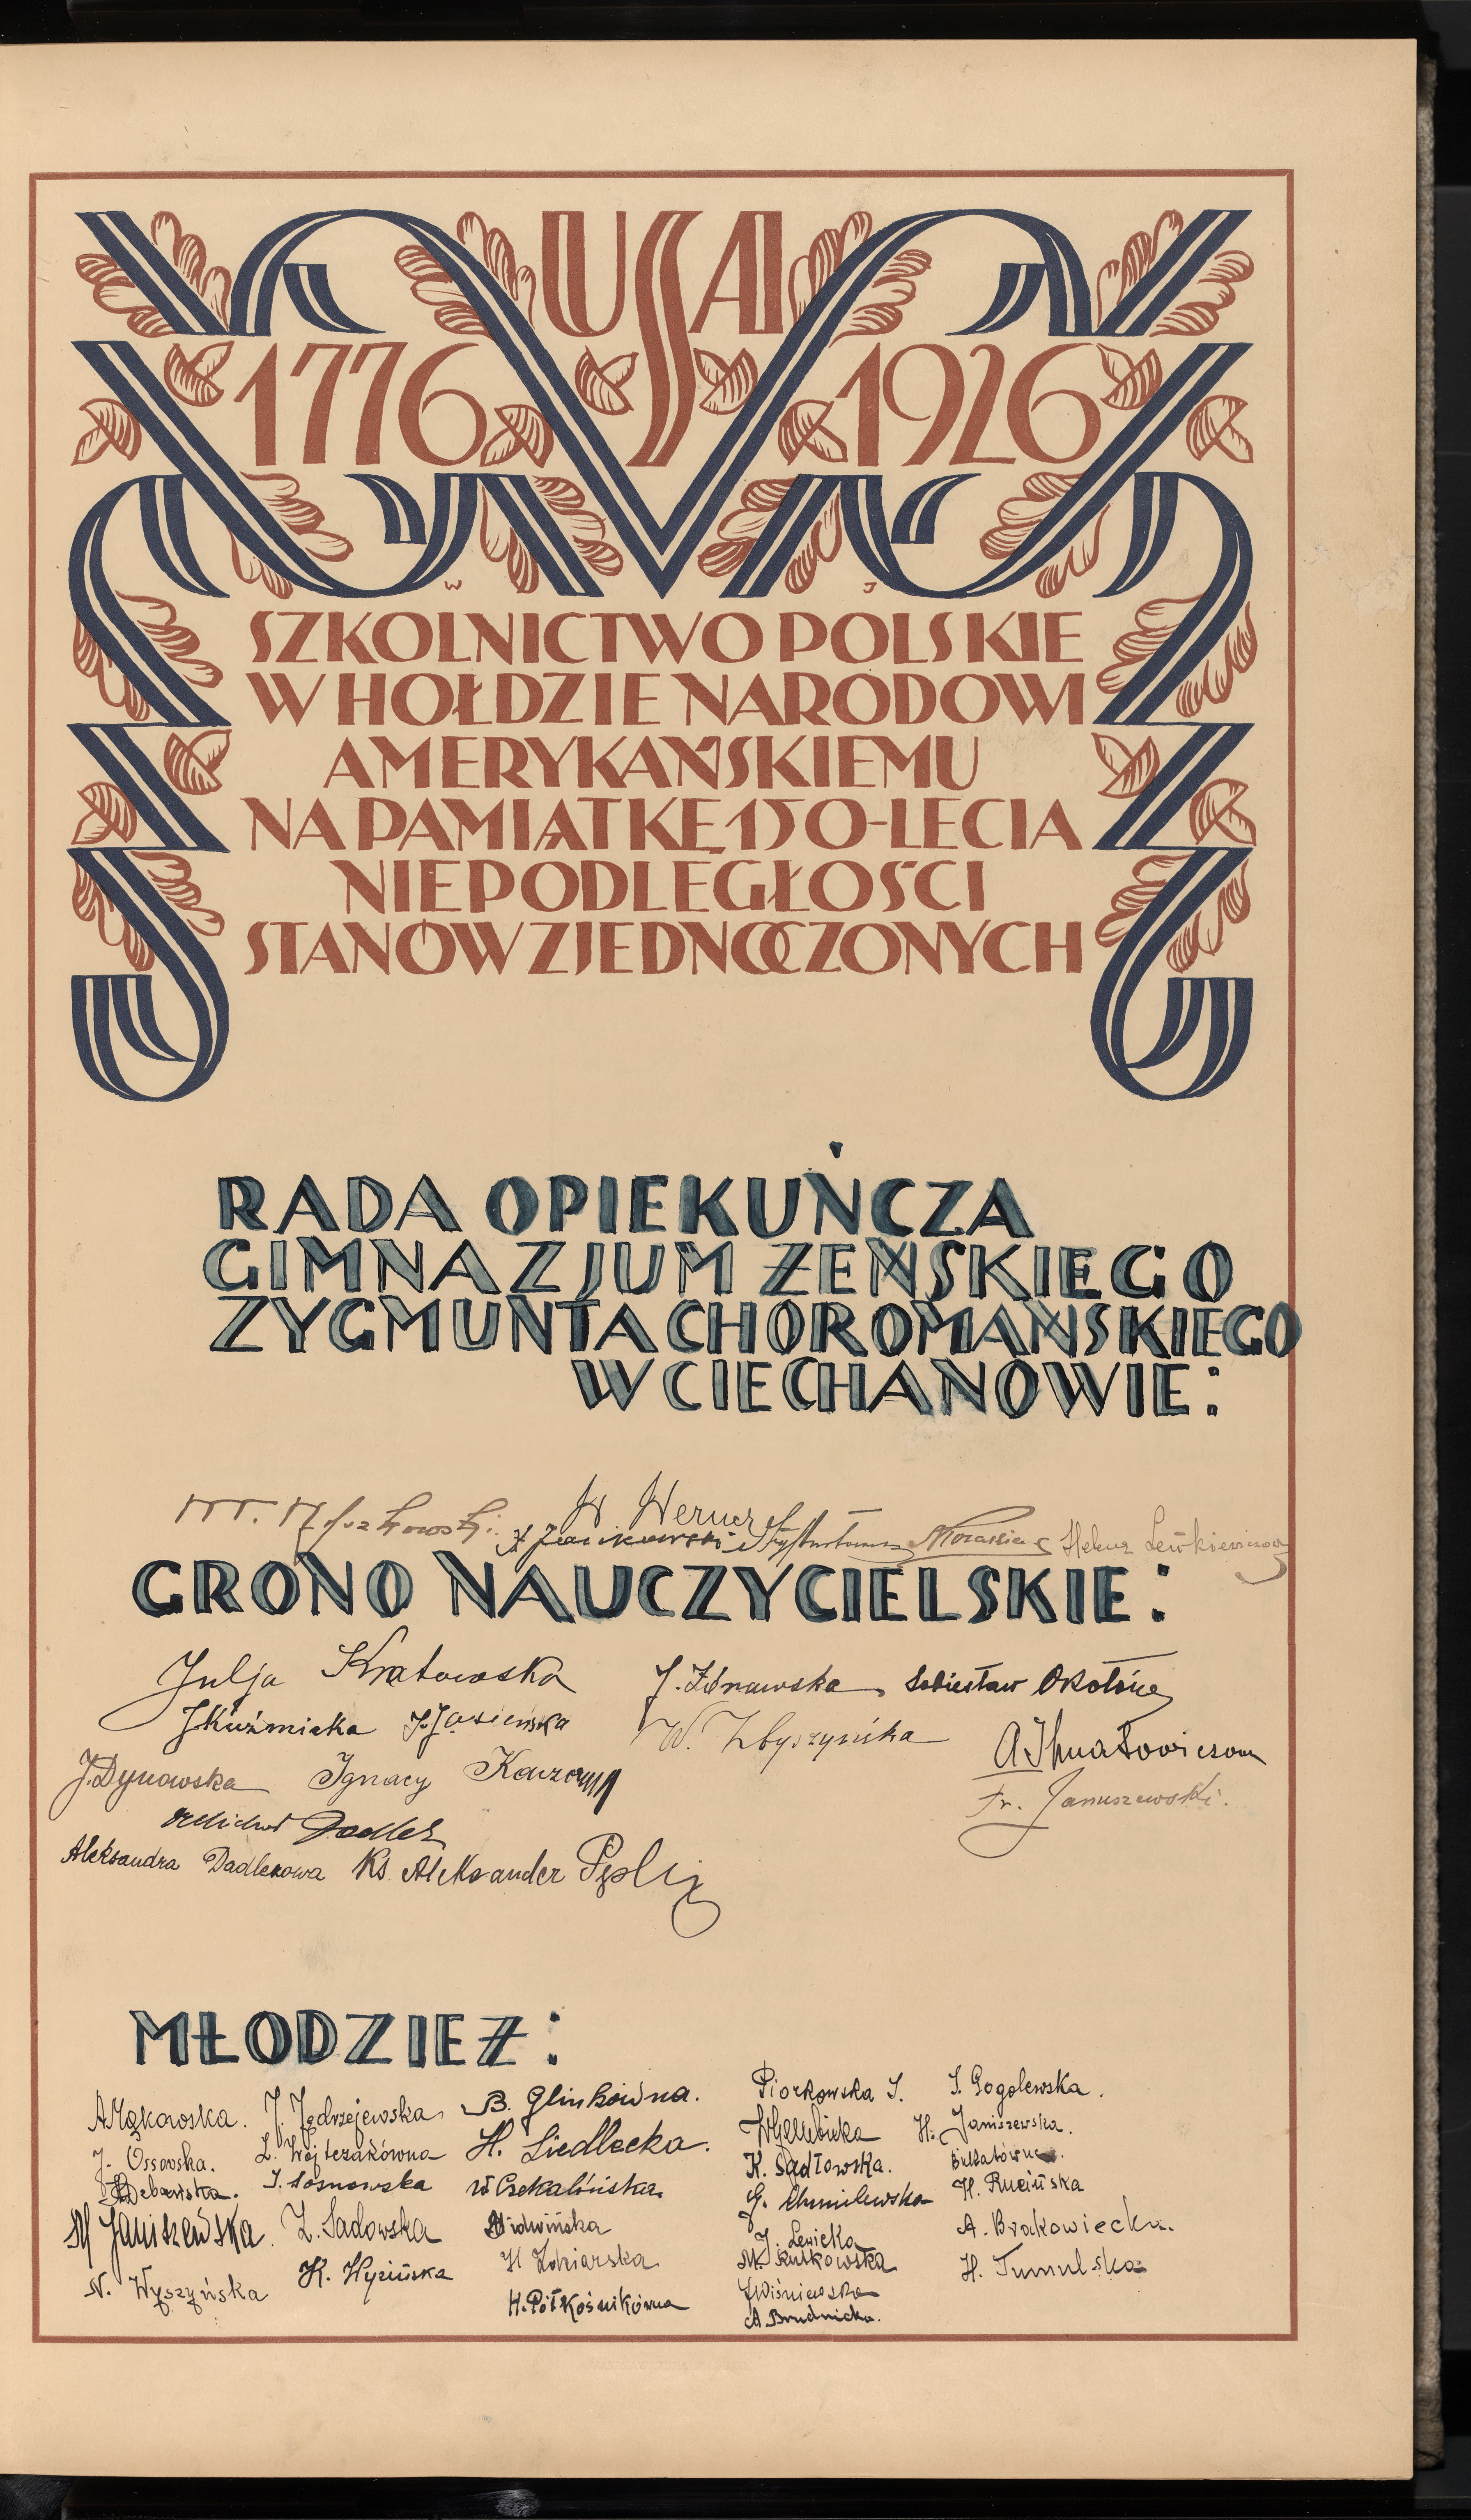 USA
1776 1926
W J
SZKOLNICTWO POLSKIE
W HOŁDZIE NARODOWI
AMERYKAŃSKIEMU
NA PAMIĄTKĘ 150-LECIA
NIEPODLEGŁOŚCI
STANÓW ZJEDNOCZONYCH
RADA OPIEKUŃCZA
GIMNAZJUM ŻEŃSKIEGO
ZYGMUNTA CHOROMAŃSKIEGO
W CIECHANOWIE:
H Werner
Helena
GRONO NAUCZYCIELSKIE:
Julja Kratowska
J. Zdnawska Sobiesław Okołów
J Kuźmicka J. Jasieńska
W. Zbyszyńska
J. Dynowska Ignacy
Fr. Januszewski.
Michał Dadlez
Aleksandra Dadlezowa Ks. Aleksander
MŁODZIEŻ:
A Mąkowska. J. Jędrzejewska B. Glinkówna. Piorkowska I. I. Gogolewska.
J. Ossowska. Z. Wójtczakówna H. Siedlecka. H. Janiszewska.
Dębowska. I. Sosnowska W Czekalińska. K. Sadłowska.
M Janiszewska. Z. Sadowska G. Chmielewska H. Rucińska
N. Wyszyńska K. Hyzińska H. Półkośnikówna J. Lewicka A. Brakowiecka.
M. Rutkowska H. Tumulska
J Wiśniewska
A Brudnicka.